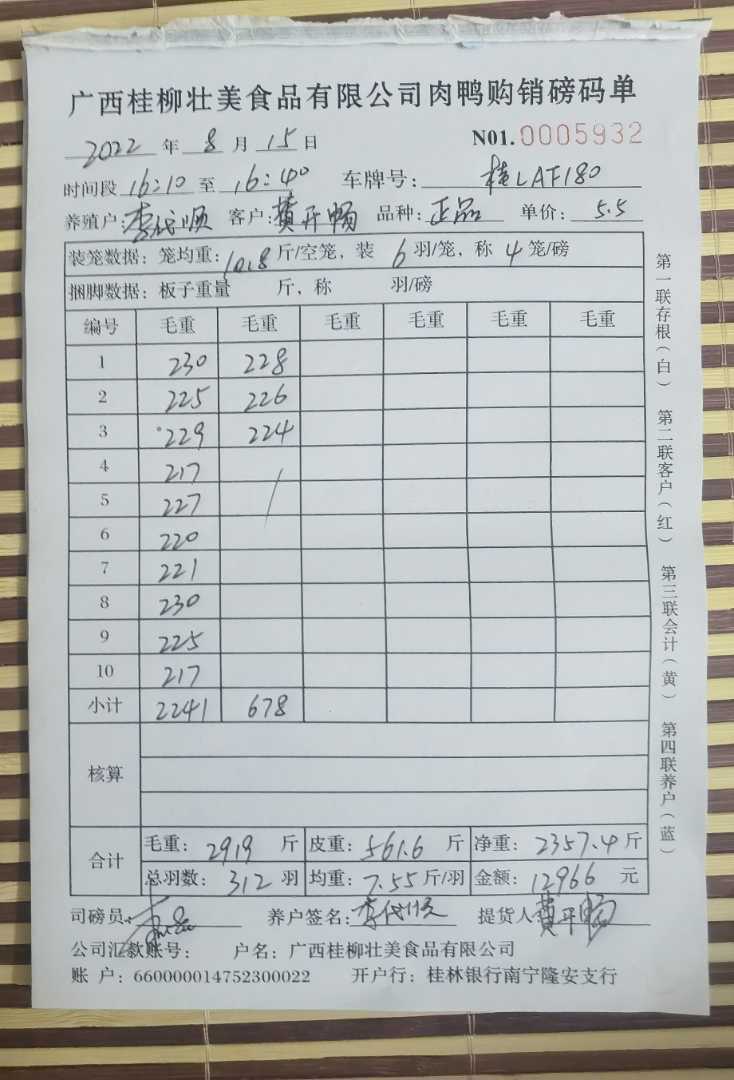 广西桂柳壮美食品有限公司肉鸭购销磅码单
2022 年 8 月 15 日 N01.0005932
时间段 16:10 至 16:40 车牌号: 桂LAF180
养殖户: 李代顺 客户: 黄开畅 品种: 正品 单价: 5.5
装笼数据: 笼均重: 10.8 斤/空笼, 装 6 羽/笼, 称 4 笼/磅
捆脚数据: 板子重量 斤, 称 羽/磅
编号 毛重 毛重 毛重 毛重 毛重 毛重
1 230 228
2 225 226
3 229 224
4 217
5 227
6 220
7 221
8 230
9 225
10 217
小计 2241 678
核算
合计 毛重: 2919 斤 皮重: 561.6 斤 净重: 2357.4 斤
总羽数: 312 羽 均重: 7.55 斤/羽 金额: 12966 元
司磅员: 养户签名: 李代顺 提货人 黄开畅
公司汇款账号: 户名: 广西桂柳壮美食品有限公司
账 户: 660000014752300022 开户行: 桂林银行南宁隆安支行
第一联存根(白) 第二联客户(红) 第三联会计(黄) 第四联养户(蓝)